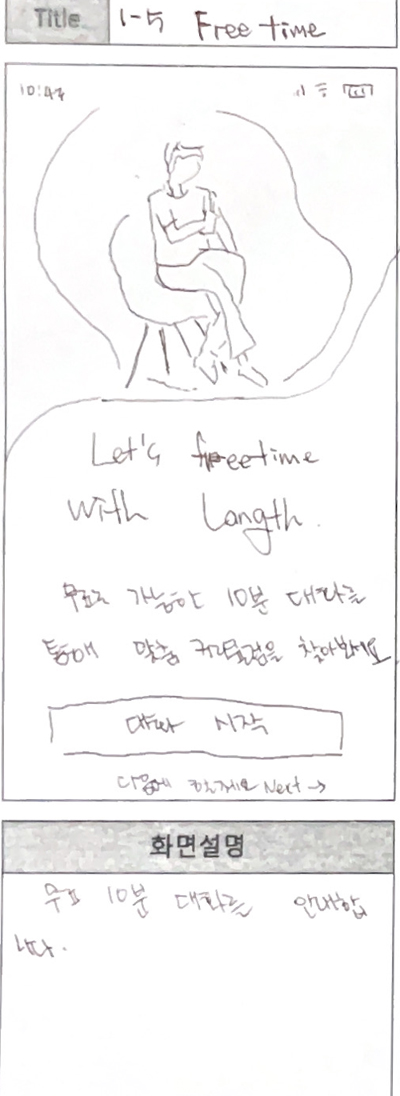 Title 1-5 Free time
10:47
Let's freetime
With Langth.
무료로 가능한 10분 대화를
통해 맞춤 커리큘럼을 찾아보세요
대화 시작
다음에 할게요 Next →
화면설명
무료 10분 대화를 안내합
니다.